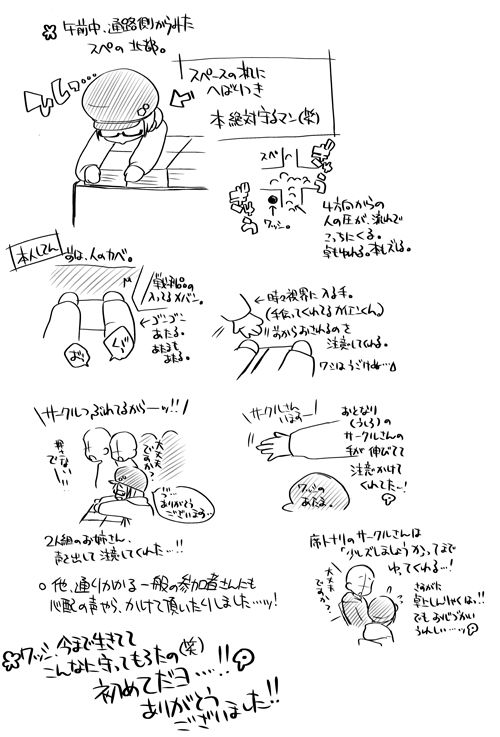 午前中、通路側からみた
スペの 北部。
スペースの机に
へばりつき
本絶対守るマン(笑)
スペ
ワッシ。
4方向からの
人の圧が、流れて
こっちにくる。
卓もゆれる。本もズレる。
本人してん
前は、人のカベ。
入ってるカバン。
ゴンゴン
あたる。
時々視界に入る手。
前からおされるのを
注意してくれる。
サークルつぶれてるからーッ!!
大丈夫
ですか?
押さない
で!
う…
ありがとう
ございます。
2人組のお姉さん、
声を出して注意してくれた…!!
サークルさん
いるよー
おとなり
(うしろ)の
サークルさんの
手が伸びてて
注意かけて
くれてたー!
ワッシの
あたま。
席トナリのサークルさんは
「少しズレましょうか」ってまで
ゆってくれる…!
大丈夫
ですか?
さすがに
でもお心づかい
うれしい…ッ
○他、通りかかる一般の参加者さんにも
心配の声やら、かけて頂いたりしました…ッ!
ワッシ、今まで生きてて
こんなに守ってもろたの(笑)
初めてだヨ…!!
ありがとう
ございました!!